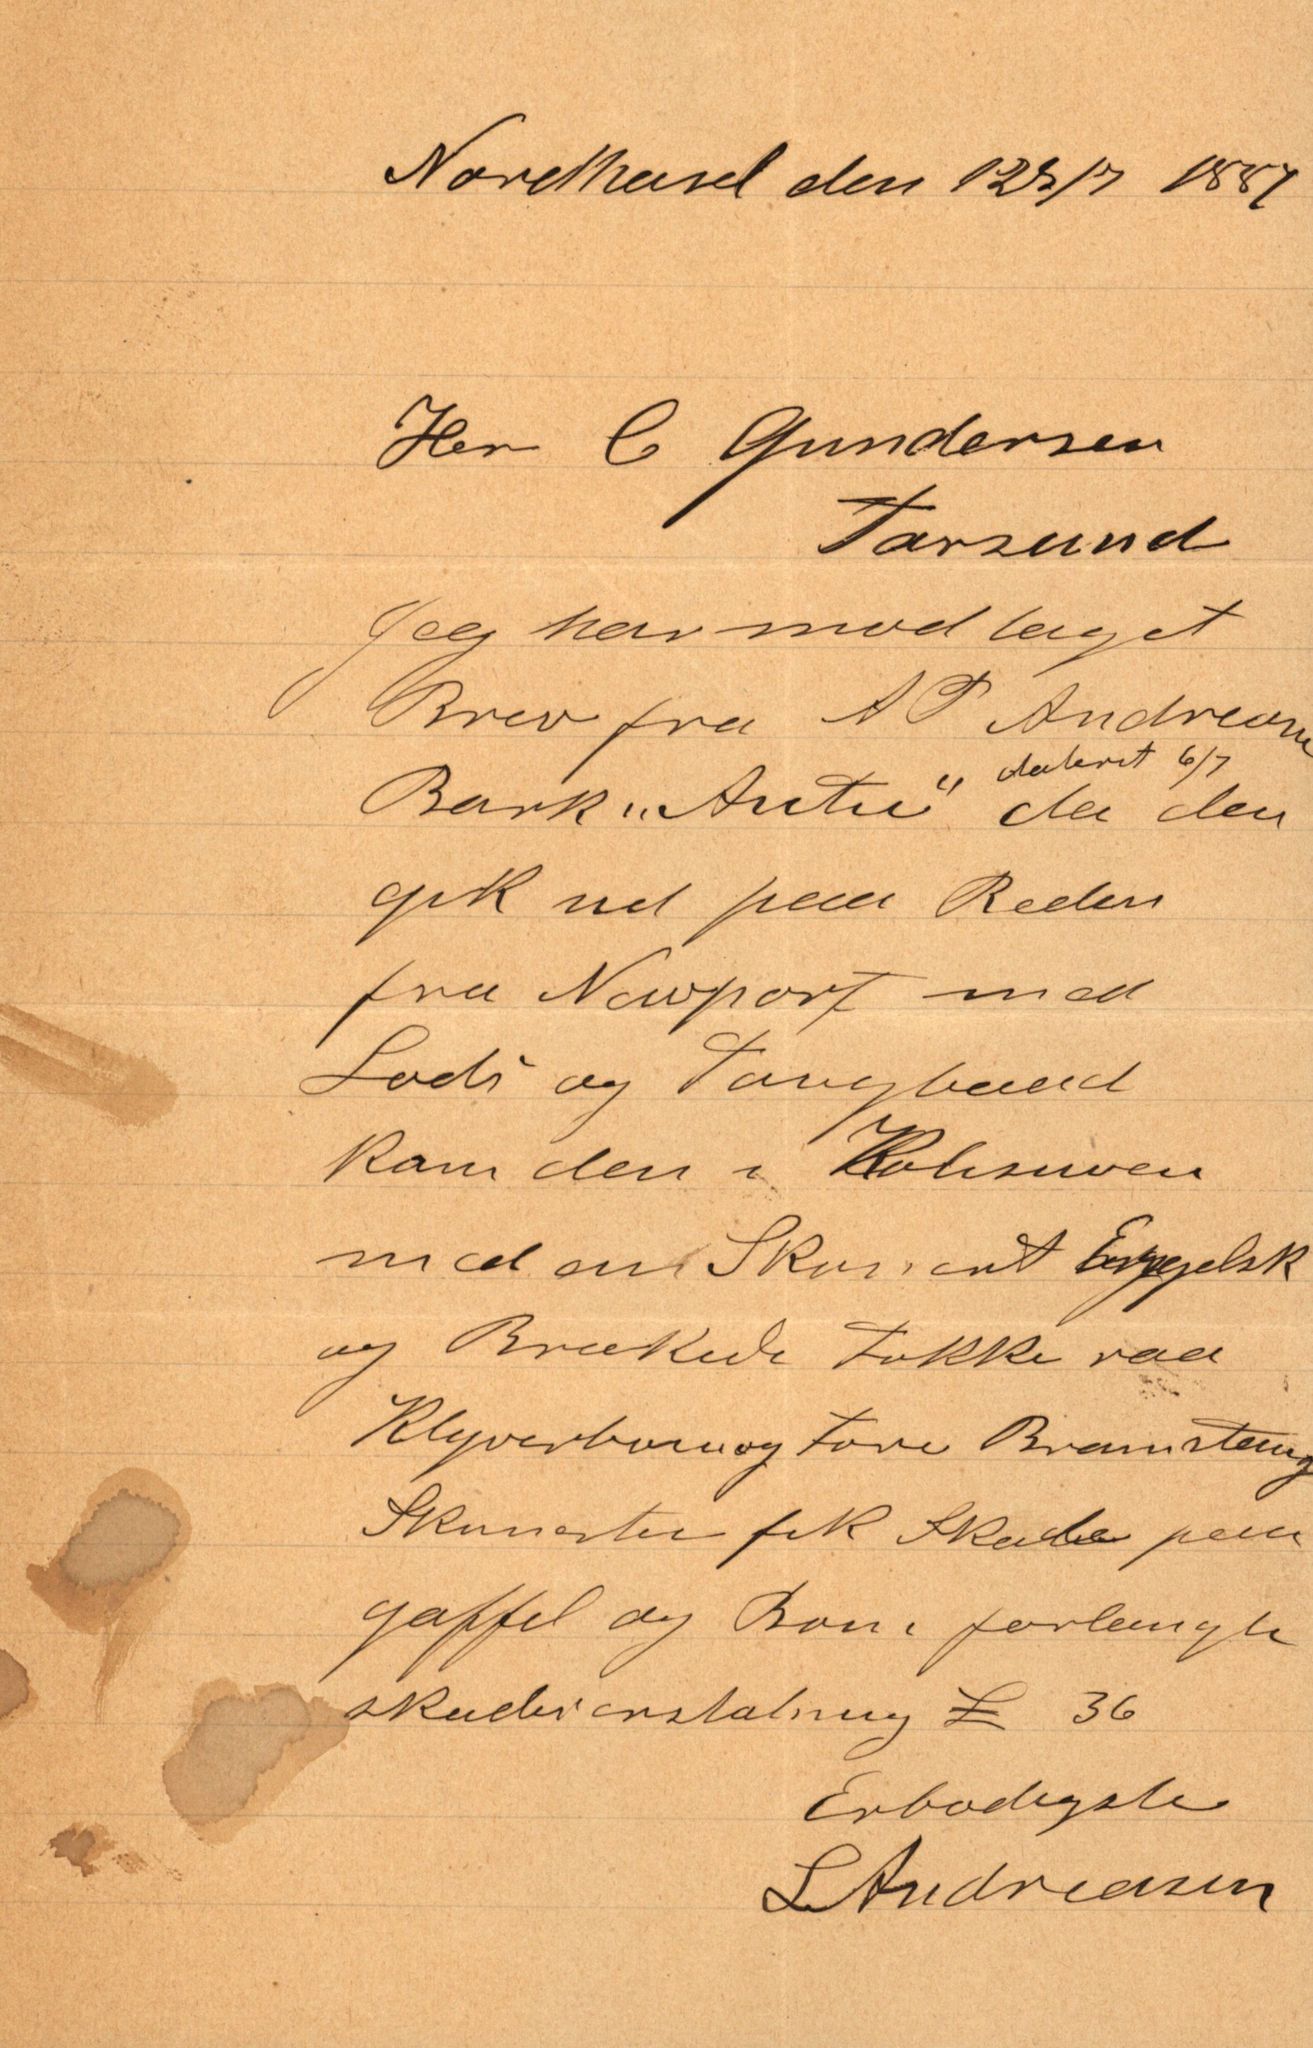 Nordhasel den 12/7 1887
Her C Gundersen
Farsund
Jeg har modtaget
Brev fra A T Andreasen
dateret 6/7
Bark "Antie" da den
gik ud paa Reden
fra Newport med
Lods og Taugbaad
kam den i Kolisuoen
med en Skun.ert Engelsk
og Brækede Fokke raa
Klyverbom og Fore Bramstang
Skunerten fik Skade paa
gaffel og Bom, forlangte
skadeserstatning £ 36
Erbødigste
L Andreasen